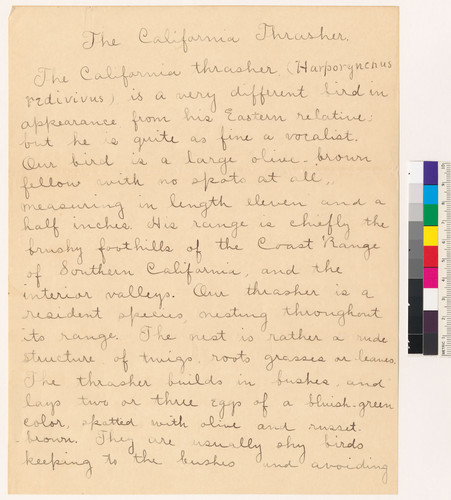 The California Thrasher.
The California thrasher (Harporynchus
redivivus) is a very different bird in
appearance from his Eastern relative;
but he is quite as fine a vocalist.
Our bird is a large olive-brown
fellow with no spots at all,
measuring in length eleven and a
half inches. His range is chiefly the
brushy foothills of the Coast Range
of Southern California, and the
interior valleys. Our thrasher is a
resident species, nesting throughout
its range. The nest is rather a rude
structure of twigs, roots grasses or leaves.
The thrasher builds in bushes, and
lays two or three eggs of a bluish-green
color, spotted with olive and russet
brown. They are usually shy birds
keeping to the bushes and avoiding